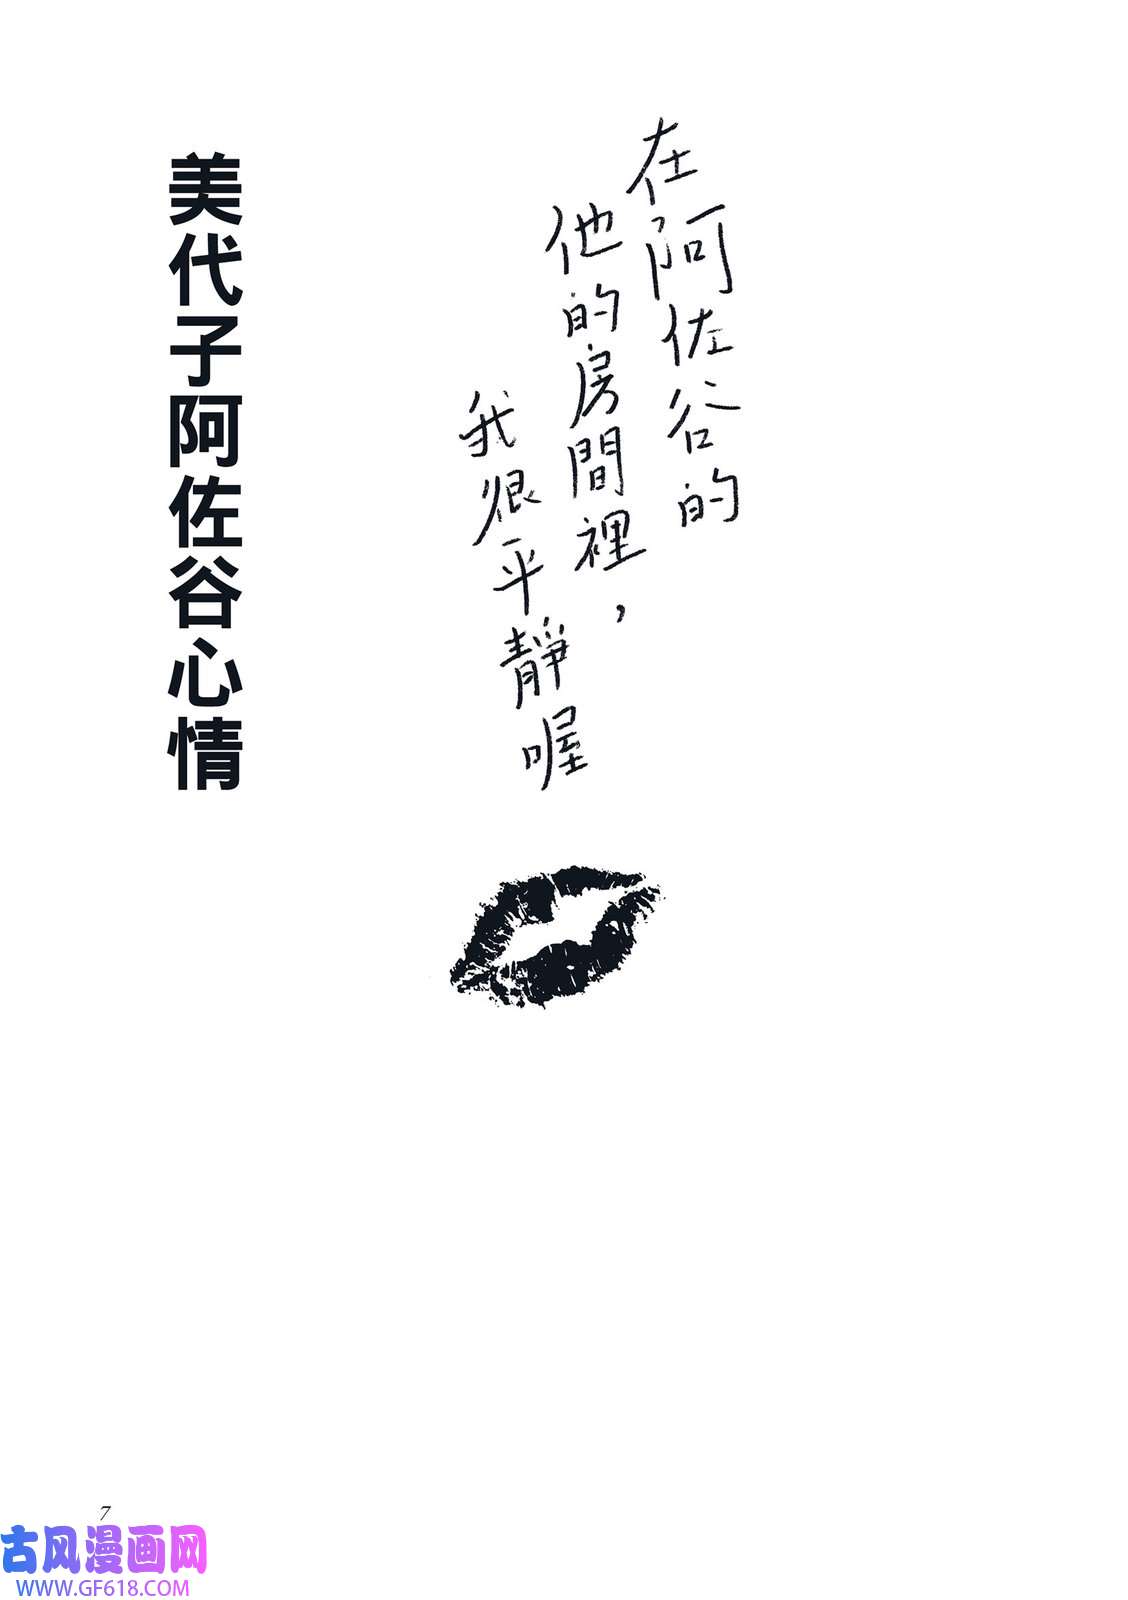 在阿佐谷的
他的房間裡，
我很平靜喔
美代子阿佐谷心情
7
古风漫画网
WWW.GF618.COM